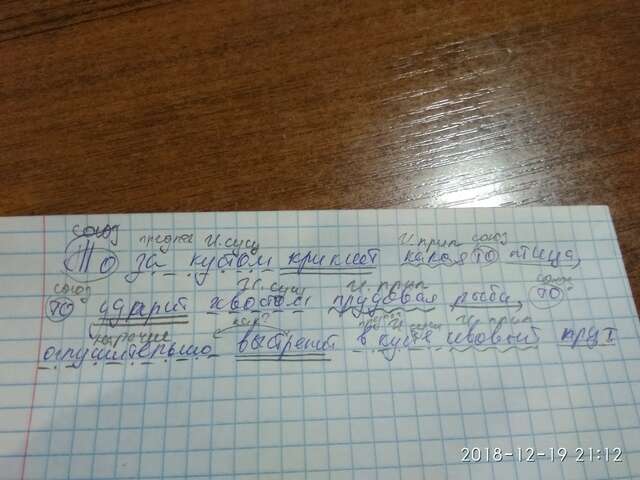 союз предлог И.сущ И.прил союз
То за кустом крикнет какая то птица,
союз И.сущ И.прил союз
то ударит хвостом прудовая рыба, то
наречие нар? пред И.сущ И.прил
оглушительно выстрелит в кусте ивовый прут
2018-12-19 21:12